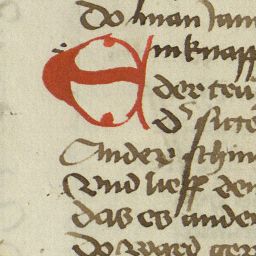 Do man Jam
Ein knapp
der teu
Der sitte
Ander schin
Vnd lieff den
das es ander
Do ward ger